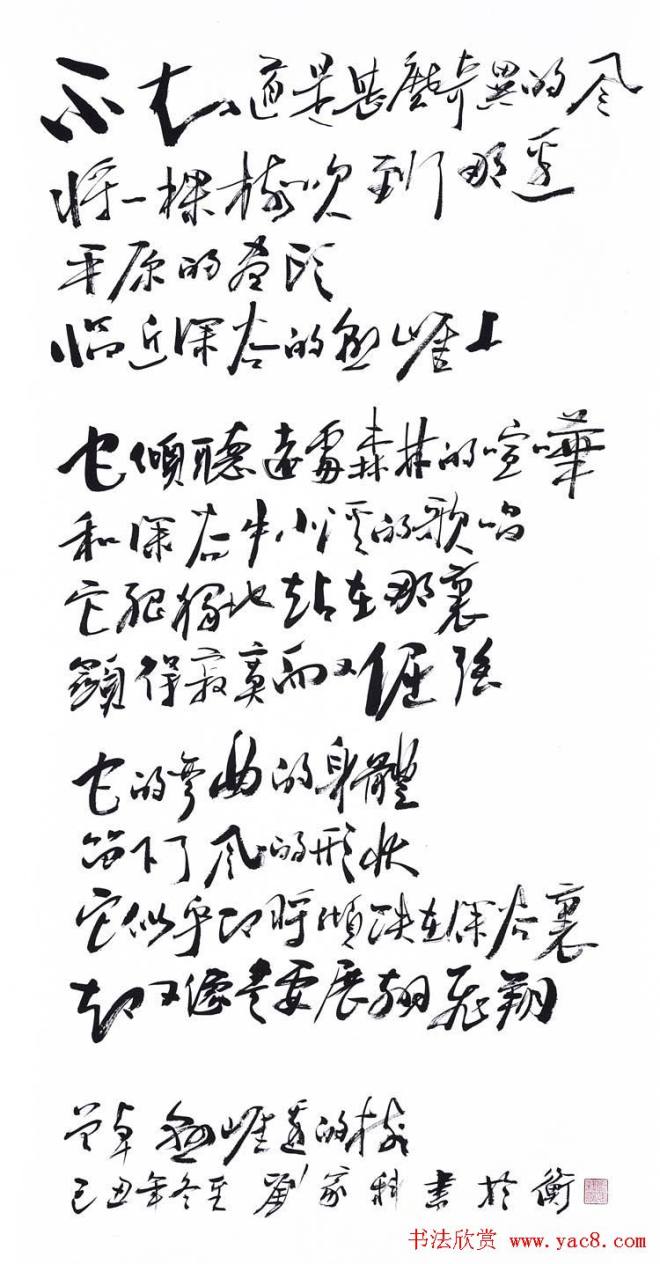 不知道是甚麼奇異的风
将一棵树吹到了那边
平原的尽头
临近深谷的悬崖上
它傾聽遠處森林的喧嘩
和深谷中小溪的歌唱
它孤獨地站在那裏
顯得寂寞而又倔强
它的彎曲的身體
留下了风的形状
它似乎即将傾跌在深谷裏
却又像是要展翅飛翔
曾卓 悬崖邊的树
己丑年冬至 劉家科書於衡
书法欣赏 www.yac8.com